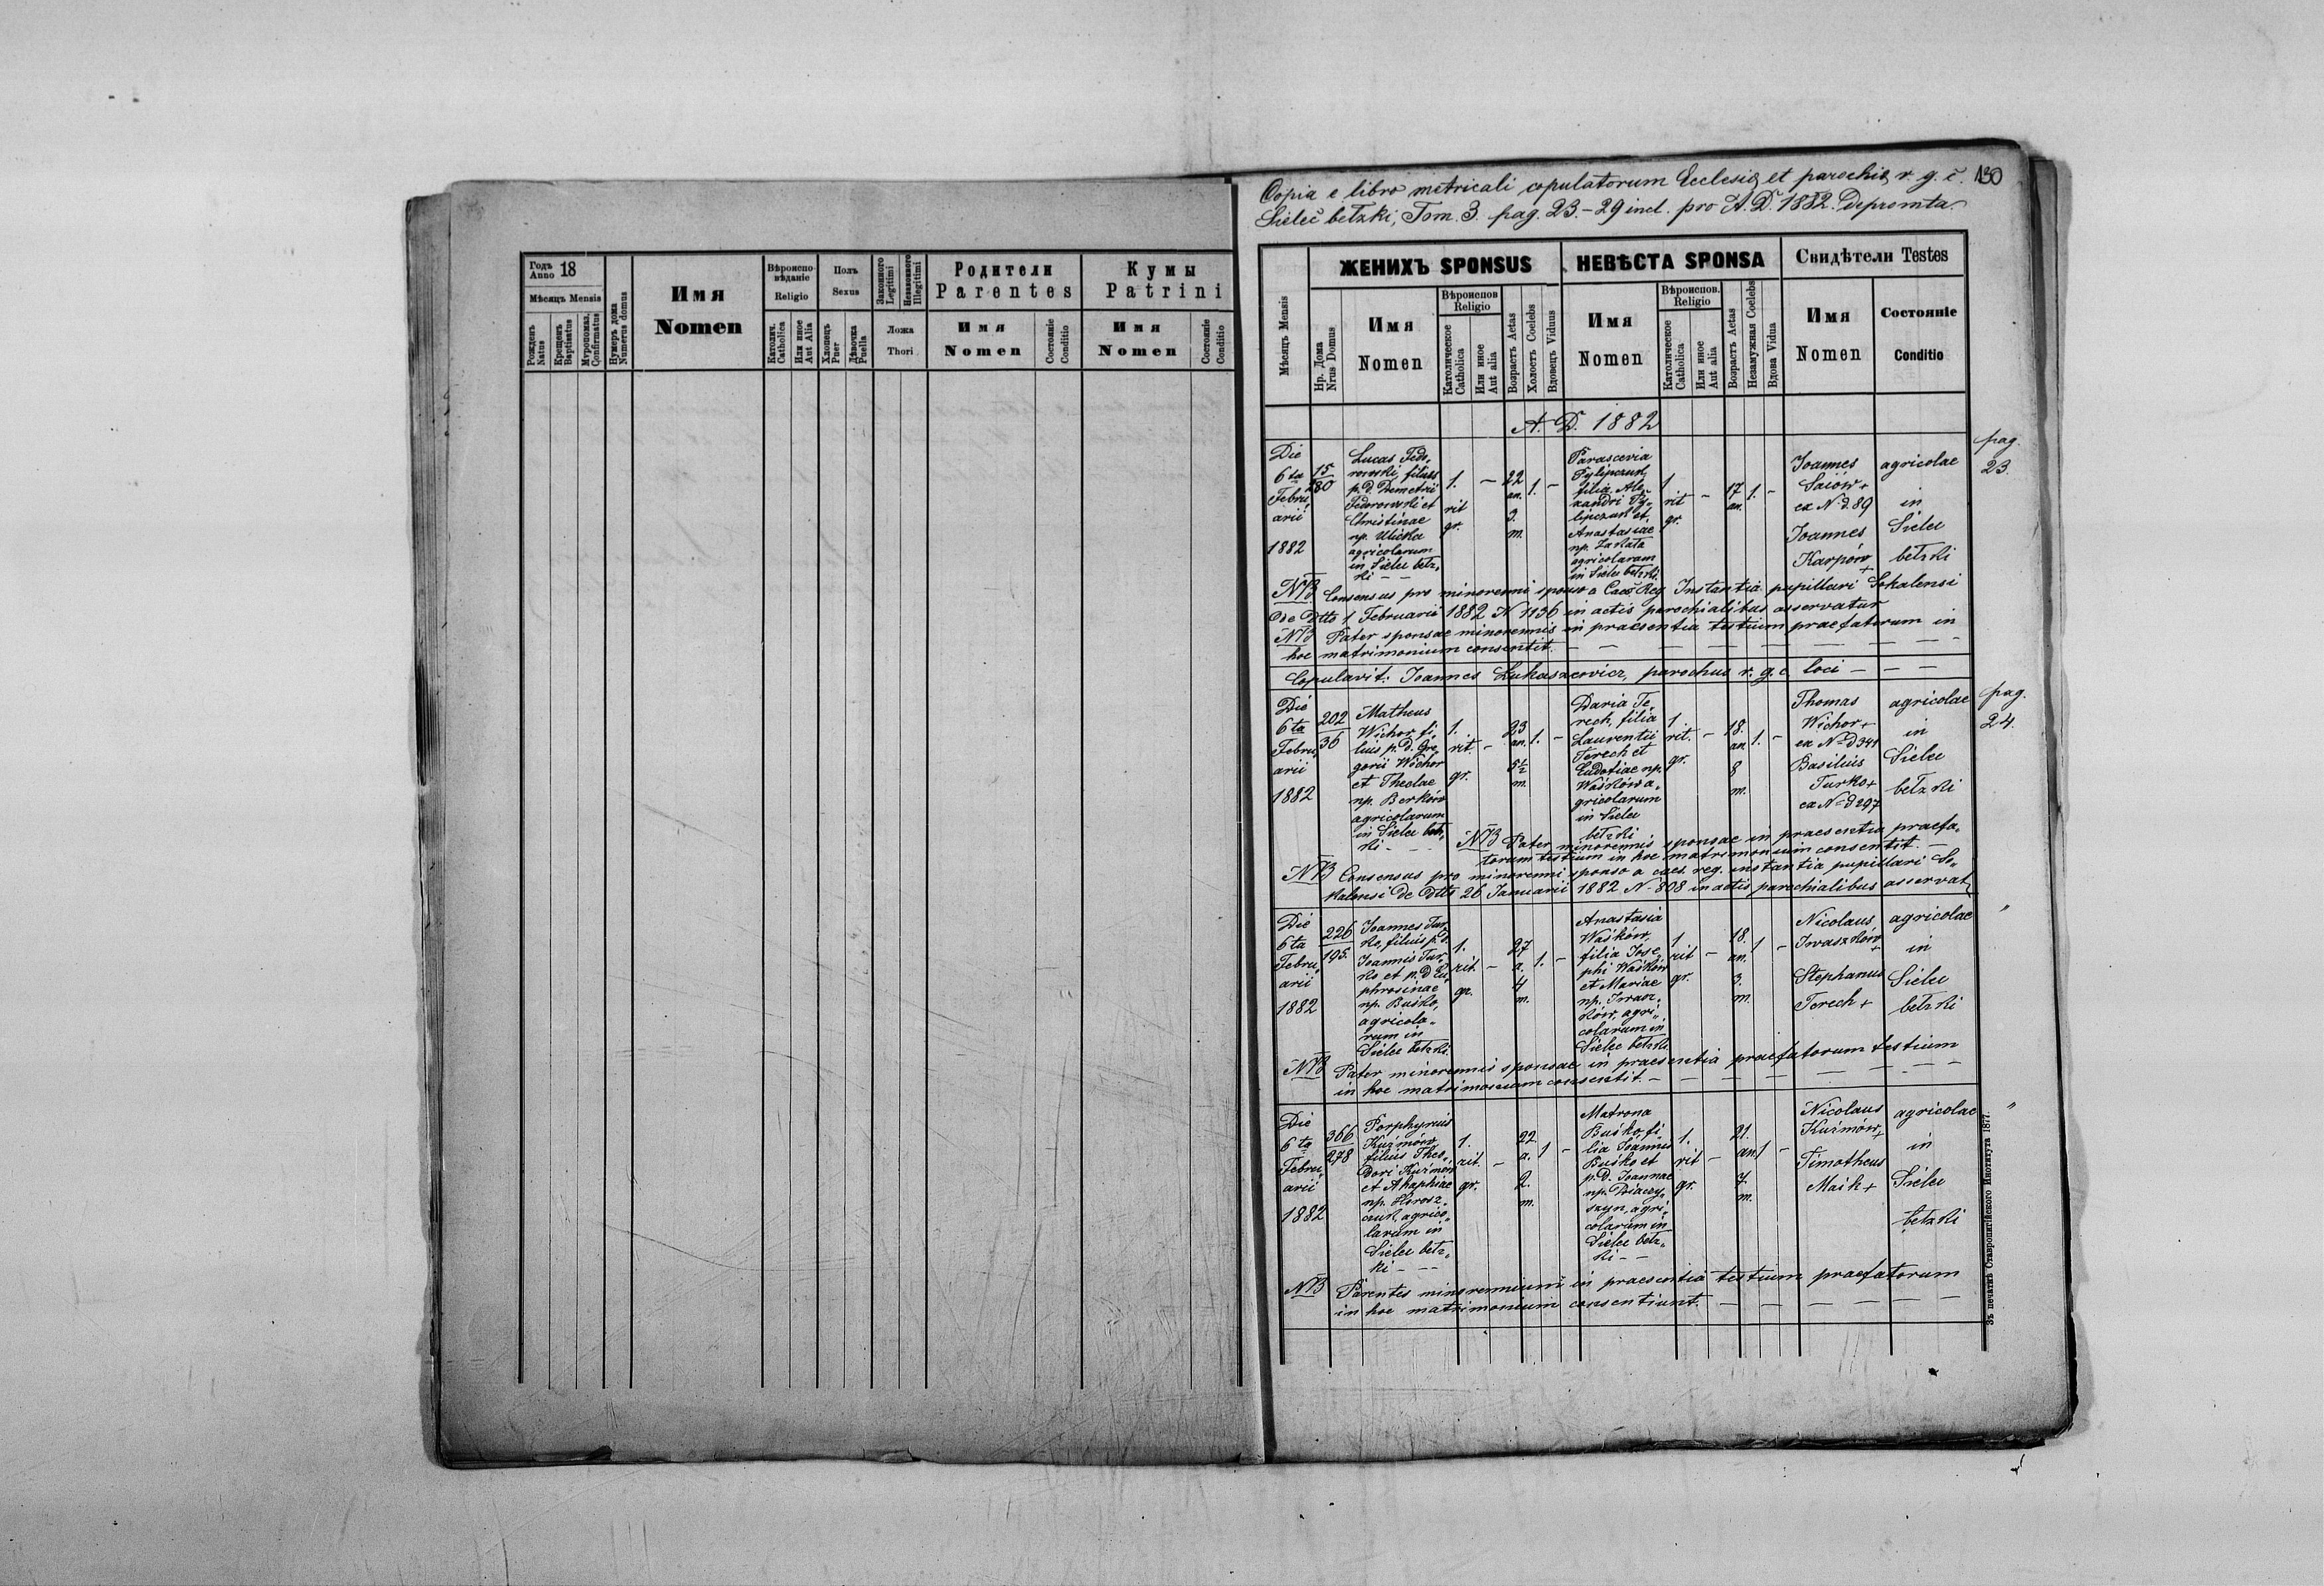 Годъ Anno 18
Мѣсяцъ Mensis
Рожденъ Natus
Крещенъ Baptisatus
Мѵропомаз. Confirmatus
Нумеръ дома Numerus domus
Имя
Nomen
Вѣроиспо-
вѣданіе
Religio
Католич. Catholica
Или иное Aut Alia
Полъ
Sexus
Хлопецъ Puer
Дѣвочка Puella
Законного Legitimi
Незаконного Illegitimi
Ложа
Thori
Родители
Parentes
Имя
Nomen
Состояніе Conditio
Кумы
Patrini
Имя
Nomen
Состояніе Conditio
Copia e libro metricali copulatorum Ecclesiæ et parochiæ r. g. c. 130
Sielec bełzki, Tom. 3. pag. 23.-29 incl. pro A. D. 1882. Depromta.
Мѣсяцъ Mensis
ЖЕНИХЪ SPONSUS
Нр. Дома Nrus Domus
Имя
Nomen
Вѣроиспов
Religio
Католическое Catholica
Или иное Aut alia
Возрастъ Aetas
Холостъ Coelebs
Вдовецъ Viduus
НЕВѢСТА SPONSA
Имя
Nomen
Вѣроиспов.
Religio
Католическое Catholica
Или иное Aut alia
Возрастъ Aetas
Незамужная Coelebs
Вдова Vidua
Свидѣтели Testes
Имя
Nomen
Состояніе
Conditio
A. D. 1882
Die
6ta
Febru,
arii
1882
15
280
Lucas Fedo,
rowski, filius
p. d. Demetrii
Fedorowski et
Christinae
np. Ulicka
agricolarum
in Sielec bełz,
ki - -
1. - 22 1. -
rit an.
gr. 3.
m.
Parascevia
Pylipczuk,
filia Ale,
xandri Py,
lipczuk et
Anastasiae
np. Zakała
agricolarum
in Sielec bełzki.
1 - 17 1. -
rit an.
gr.
Joannes
Saiów +
ex N. d. 89
Joannes
Karpów
+
agricolae
in
Sielec
bełzki
pag.
23.
NB Consensus pro minorenni sponso a Caes. Reg. Instantia pupillari Sokalensi
de dtto 1 Februarii 1882 N 1136 in actis parochialibus asservatur
NB Pater sponsae minorennis in praesentia testium praefatorum in
hoc matrimonium consentit. - - - - - - -
Copulavit: Joannes Łukaszewicz, parochus r. g. c. loci - - -
Die
6ta
Febru,
arii
1882
202
36
Matheus
Wichor, fi,
lius p. d. Gre,
gorii Wichor
et Theclae
np. Berków
agricolarum
in Sielec bełz,
ki - - -
1. 23 1. -
rit. - an.
gr. 5½
m.
Daria Te,
rech, filia
Laurentii
Terech et
Eudotiae np.
Waśków a,
gricolarum
in Sielec
bełzki
1. 18. 1. -
rit. - an
gr. 8
m.
Thomas
Wichor +
ex N-d 341
Basilius
Turko +
ex N-d 297
agricolae
in
Sielec
bełzki
pag.
24.
NB Pater minorennis sponsae in praesentia praefa,
torum testium in hoc matrimonium consentit. -
NB Consensus pro minorenni sponso a caes. reg. instantia pupillari So,
kalensi de dtto 26 Januarii 1882 N. 808 in actis parochialibus asservat
Die
6ta
Febru,
arii
1882
226
195.
Joannes Tur,
ko, filius p. d.
Joannis Tur,
ko et p. d Eu,
phrosinae
np. Buśko,
agricola,
rum in
Sielec bełzki.
1. 27 1. -
rit. - a.
gr. 4
m.
Anastasia
Waśków,
filia Jose,
phi Waśków
et Mariae
np. Iwasz,
ków, agri,
colarum in
Sielec bełzki
1 18. 1 -
rit - an.
gr. 3.
m.
Nicolaus
Iwaszków
+
Stephanus
Terech +
agricolae
in
Sielec
bełzki
"
NB Pater minorennis sponsae in praesentia praefatorum testium
in hoc matrimonium consentit. - - - - - - -
Die
6ta
Febru,
arii
1882
366
278
Porphyrius
Kuźmów
filius Theo,
dori Kuźmów
et Ahaphiae
np. Horosz,
czuk, agrico,
larum in
Sielec bełz,
ki - - -
1. 22 1 -
rit. - a.
gr. 2.
m.
Matrona
Buśko, fi,
lia Joannis
Buśko et
p. d. Joannae
np. Diaczy,
szyn, agri,
colarum in
Sielec bełz,
ki - -
1. 21. 1 -
rit - an.
gr. 7.
m.
Nicolaus
Kuźmów
+
Timotheus
Maik +
agricolae
in
Sielec
bełzki
"
NB Parentes minorennium in praesentia testium praefatorum
in hoc matrimonium consentiunt. - - - - - -
Зъ печатнѣ Ставропигійского Института 1877.